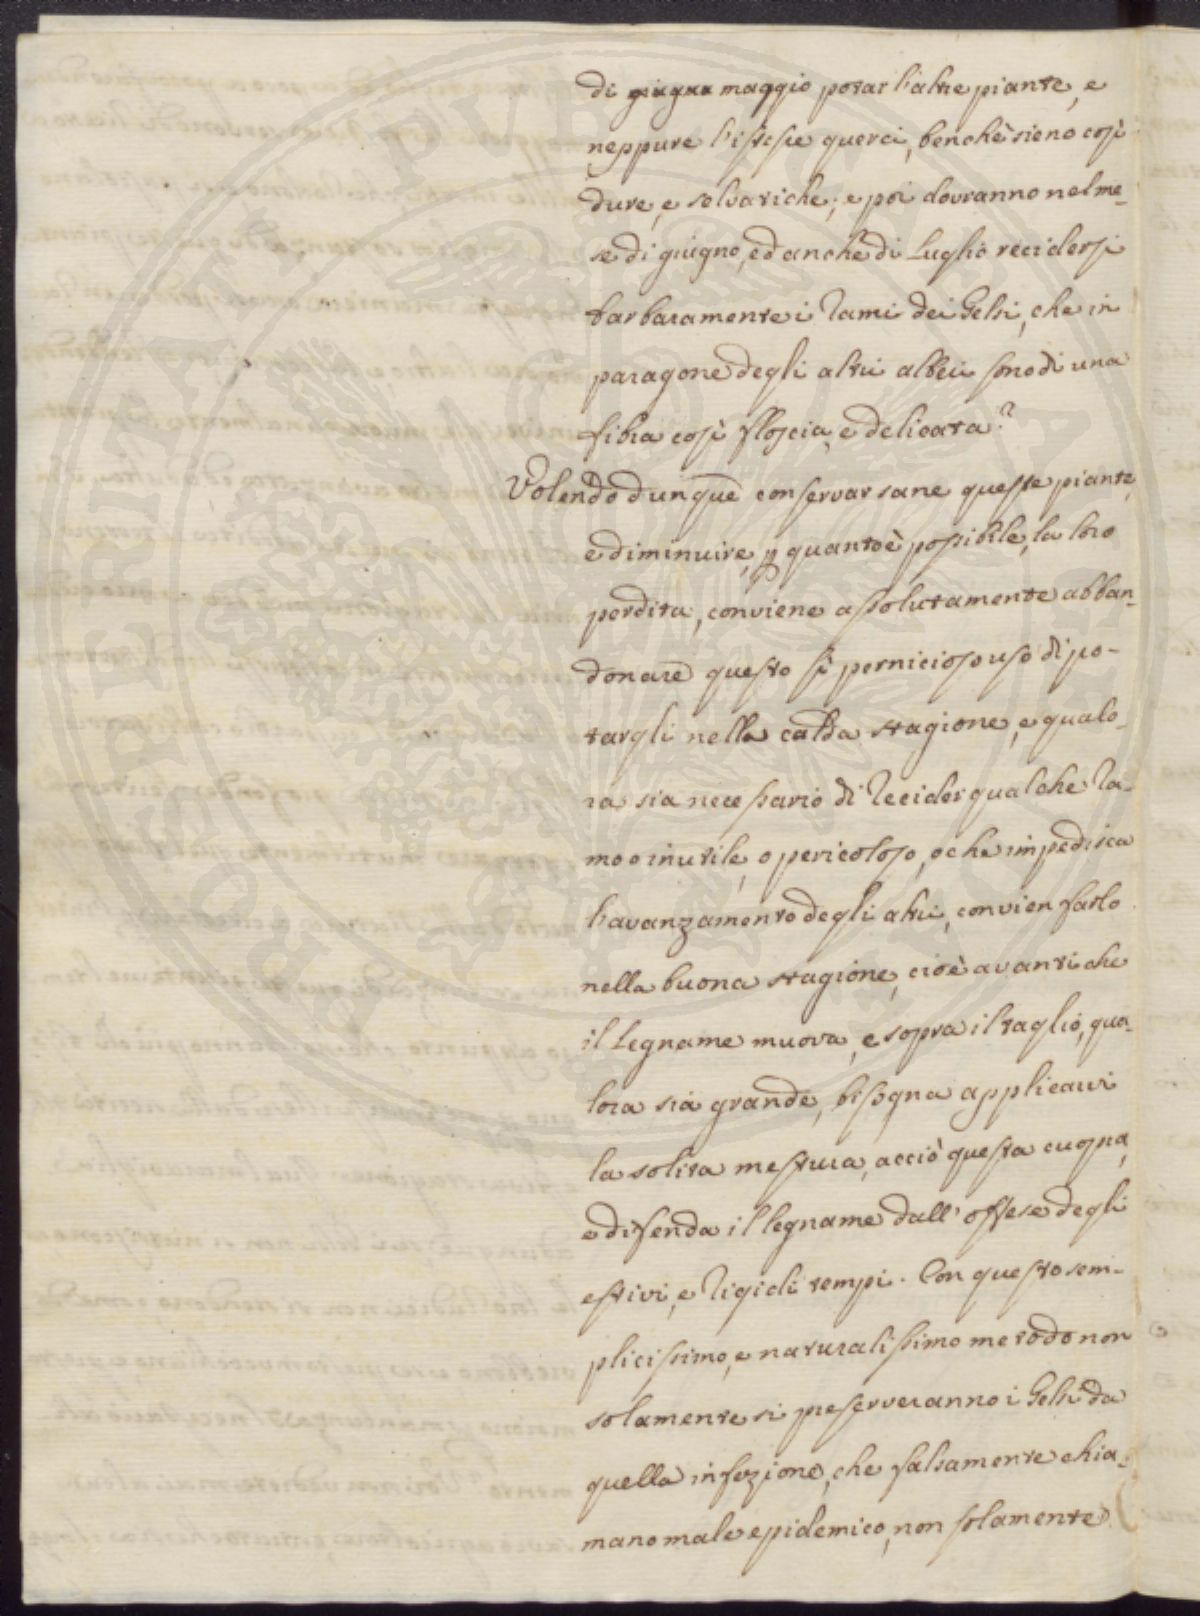 di giugno maggio potar l'altre piante, e
neppure l'istesse querci, benchè sieno così
dure, e selvatiche; e poi dovranno nel me-
se di giugno, ed anche di Luglio recidersi
barbaramente i rami dei Gelsi, che in
paragone degli altri alberi sono di una
fibra così floscia, e delicata?
Volendo dunque conservar sane queste piante,
e diminuire, p quanto è possibile, la loro
perdita, conviene assolutamente abban-
donare questo sì pernicioso uso di po-
targli nella calda stagione, e qualo-
ra sia necessario di recider qualche ra-
mo o inutile, o pericoloso, o che impedisca
l'avanzamento degli altri, convien farlo
nella buona stagione, cioè avanti che
il Legname muova, e sopra il taglio, qua-
lora sia grande, bisogna applicarvi
la solita mestura, acciò questa cuopra,
e difenda il legname dall'offese degli
estivi, e rigidi tempi. Con questo sem-
plicissimo, e naturalissimo metodo non
solamente si preserveranno i Gelsi da
quella infezione, che falsamente chia-
mano male epidemico, non solamente
PVB